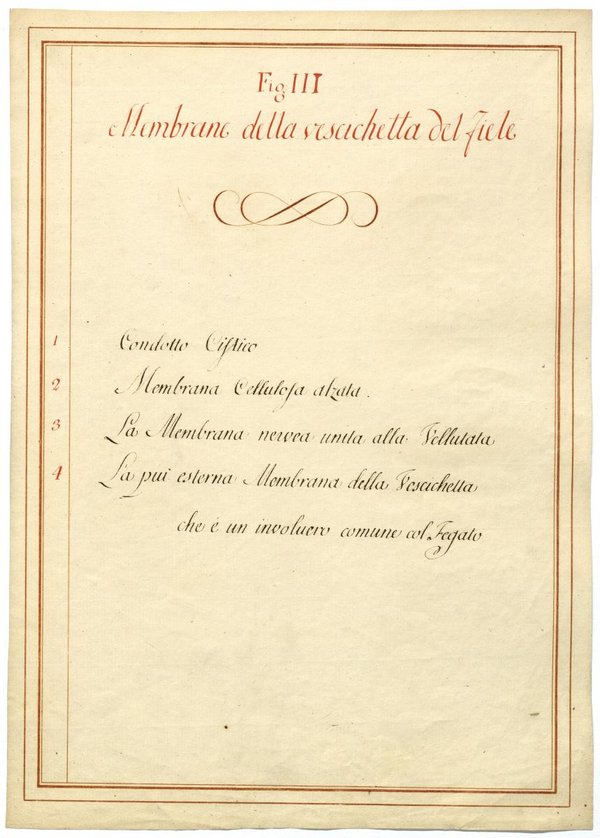 Fig III
Membrane della vescichetta del Fiele
1 Condotto Cistico
2 Membrana Cellulosa alzata.
3 La Membrana nervea unita alla Vellutata
4 La pui esterna Membrana della Vescichetta
che é un involucro comune col Fegato